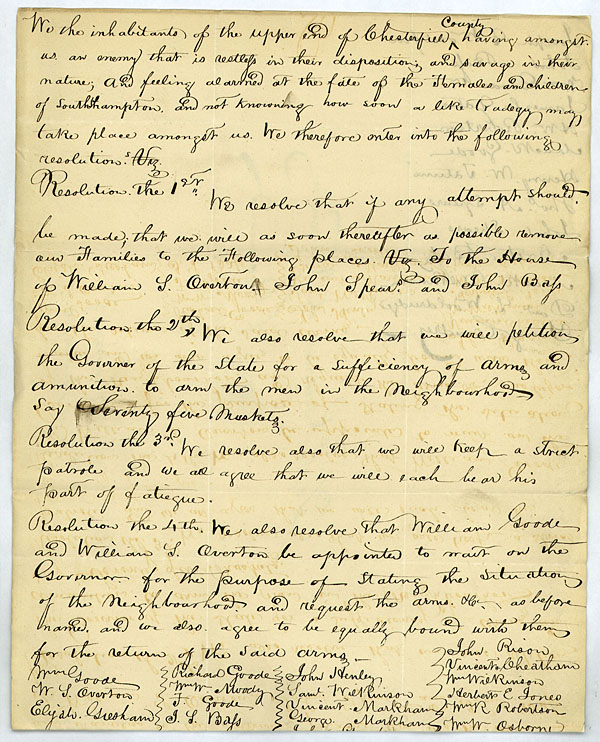 We the inhabitants of the upper end of Chesterfield County having amongst
us an enemy that is restless in their disposition; and savage in their
nature; and feeling alarmed at the fate of the Females and children
of Southhampton, and not knowing how soon a like tradegy may
take place amongst us. We therefore enter into the following
resolutions. Viz
Resolution. the 1st.
We resolve that if any attempt should.
be made; that we will as soon thereafter as possible remove
our Families to the Following places. Viz. To the House
of William S. Overton, John Spears and John Bass
Resolution. the 2th We also resolve that we will petition
the Governer of the State for a sufficiency of arms and
amunition. to arm the men in the Neighbourhood
Say Seventy five Muskets.
Resolution the 3rd. We resolve also that we will keep a strict
patrole and we all agree that we will each bear his
part of fatiegue.
Resolution the 4th. We also resolve that William Goode
and William S. Overton be appointed to wait on the
Governor for the purpose of Stating the Situation
of the Neighbourhood and request the arms. &c. as before
named. and we also agree to be equally bound with them
for the return of the said arms.
Wm Goode
W. S. Overton
Elijah. Gresham
Richard Goode
Wm W. Moody
T. Goode
J. S. Bass
John Henley
Saml. Wilkinson
Vincent Markham
George Markham
John Rison
Vincent Cheatham
Wm Wilkinson
Herbert E. Jones
Wm R. Robertson
Wm W. Osborne